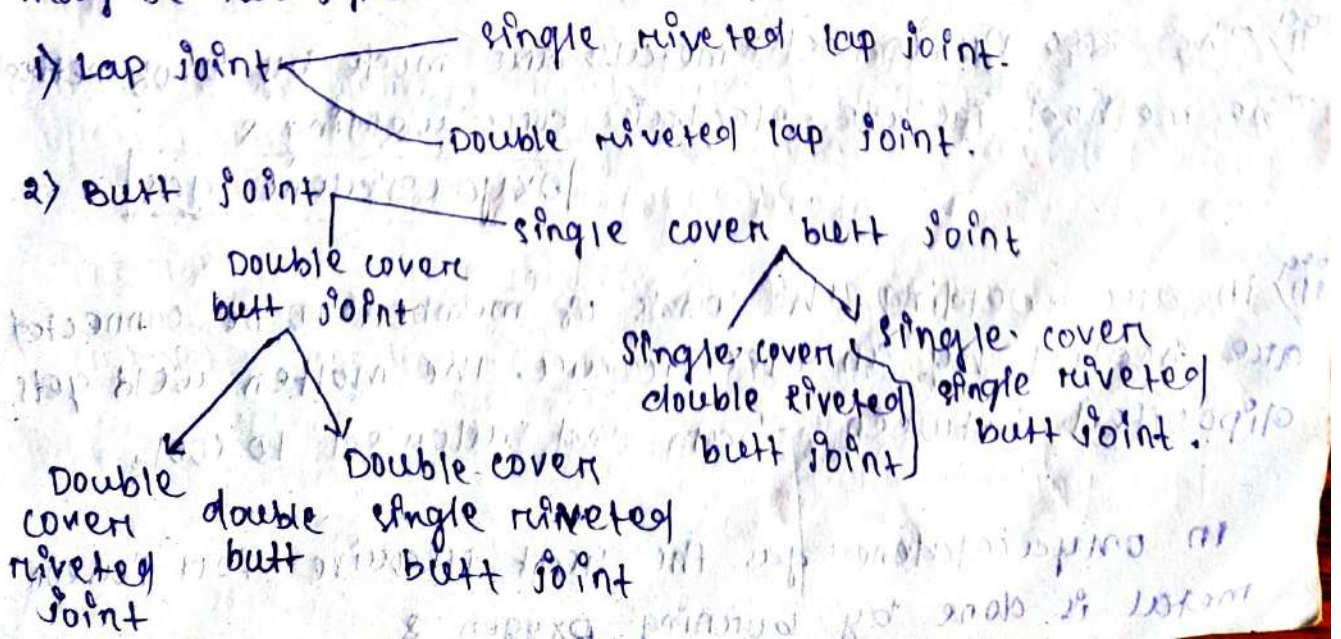 1) Lap joint
single riveted lap joint.
Double riveted lap joint.
2) Butt joint
single cover butt joint
Double cover
butt joint
Single cover
double riveted
butt joint
single cover
single riveted
butt joint.
Double
cover double
riveted butt
joint
Double cover
single riveted
butt joint